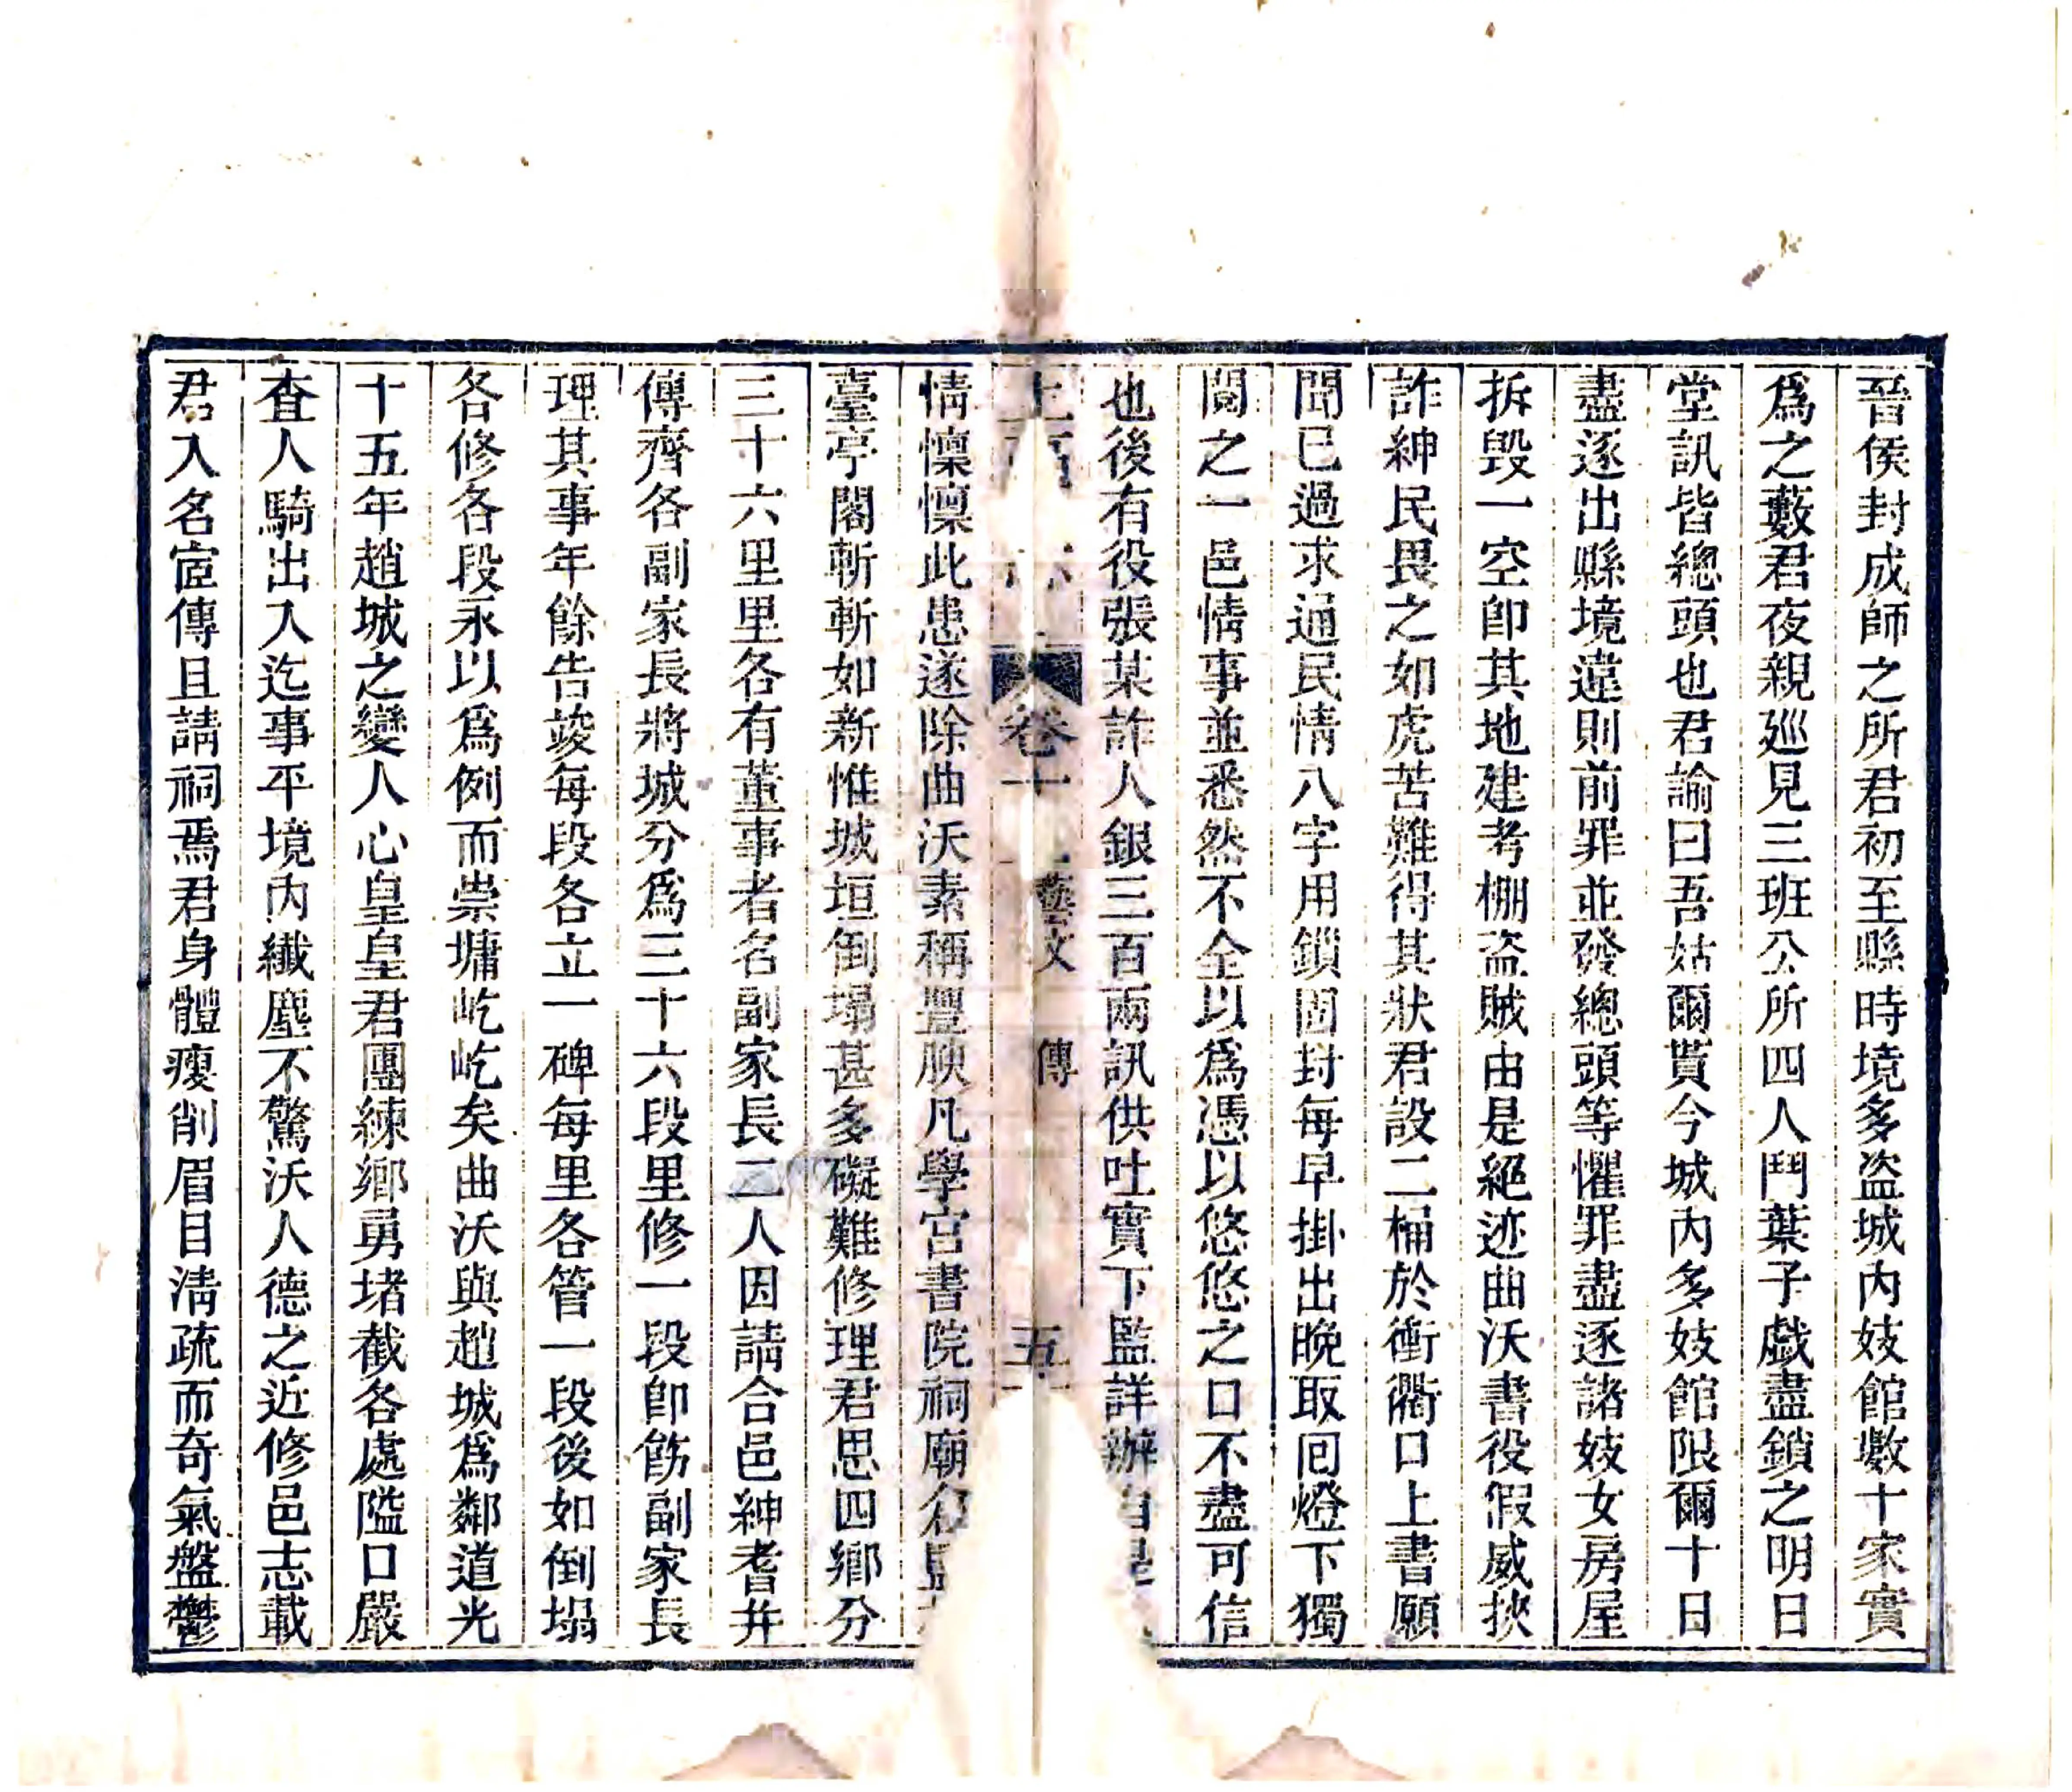 晉侯封成師之所君初至縣時境多盜城内妓館數十家實
爲之藪君夜親廵見三班公所四人鬥葉子戲盡鎖之明日
堂訊皆總頭也君諭曰吾姑爾貰今城内多妓館限爾十日
盡逐出縣境違則前罪並發總頭等懼罪盡逐諸妓女房屋
拆毀一空卽其地建考棚盗賊由是絕迹曲沃書役假威挾
詐紳民畏之如虎苦難得其狀君設二桶於衝衢口上書願
聞已過求通民情八字用鎖固封每早掛出晚取回燈下獨
閱之一邑情事並悉然不全以爲憑以悠悠之口不盡可信
也後有役張某詐人銀三百兩訊供吐實下監詳辦自是
卷十 藝文 傳 五
情懍懍此患遂除曲沃素稱豐腴凡學宫書院祠廟倉
臺亭閣斬斬如新惟城垣倒塌甚多礙難修理君思四鄉分
三十六里里各有董事者名副家長二人因請合邑紳耆幷
傳齊各副家長將城分爲三十六段里修一段卽飭副家長
理其事年餘告竣每段各立一碑每里各管一段後如倒塌
各修各段永以爲例而崇墉屹屹矣曲沃與趙城爲鄰道光
十五年趙城之變人心皇皇君團練鄉勇堵截各處隘口嚴
査人騎出入迄事平境内纖塵不驚沃人德之近修邑志載
君入名宦傳且請祠焉君身體瘦削眉目淸疏而奇氣盤鬱